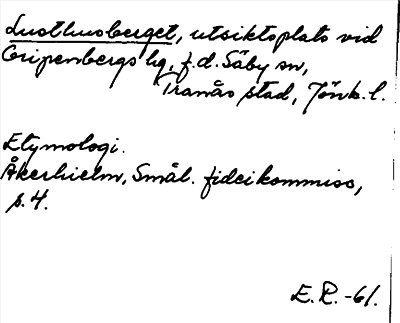 Lusthusberget, utsiktsplats vid
Gripenbergs hg, f.d. Säby sn,
Tranås stad, Jönk. l.
Etymologi.
Åkerhielm, Smål. fideikommiss,
s. 4.
E. R. -61.